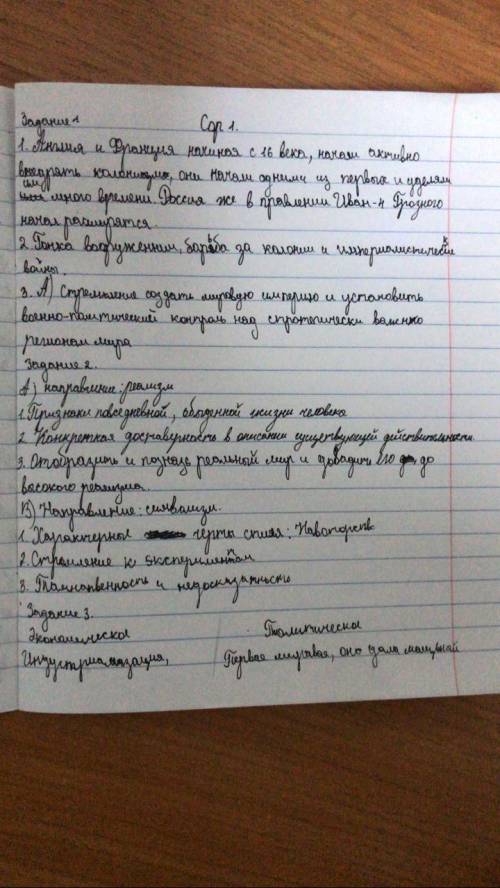 Задание 1
Сор 1.
1. Англия и Франция начиная с 16 века, начали активно
внедрять колонизмо, они начали одними из первых и уделяли
им много времени. Россия же в правлении Иван-4 Грозного
начал расширятся.
2. Гонка вооружении, борьба за колонии и империалистические
войны.
3. А) Стремление создать мировую империю и установить
военно-политический контроль над стротегически важнко
регионом мира
Задание 2.
А) направление: реализм
1. Признаки повседневной, обыденной жизни человека
2. Конкретная доставерность в описании существующей действительности.
3. Отобразить и познать реальный мир и довадить его до
высокого реализма.
В) Направление: симвализм.
1. Характерные черты стиля: Новаторств
2. Стремление к экспериментам
3. Таинственность и недосказаность
Задание 3.
Экономическое
Политическое
Индустриализация,
Первая мировая, она дала мощьный